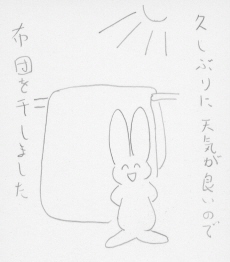 久しぶりに天気が良いので
布団を干しました